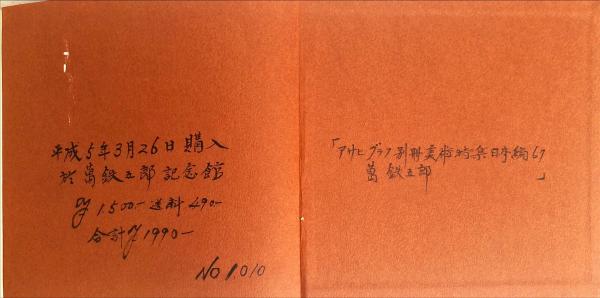 平成5年3月26日購入
於萬鉄五郎記念館
¥1.500- 送料490-
合計¥1990-
NO 1.010
「アサヒグラフ別冊美術特集日本編67
萬鉄五郎」